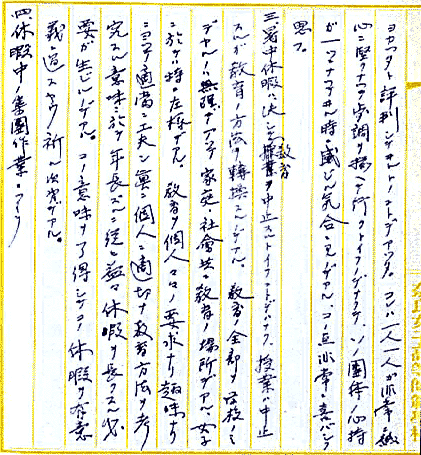 ヨカッタト評判シテキルトノコトデアッタ。コレハ一人一人が非常ニ緻
心ニ堅クナッテ歩調ヲ揚ヘテ行クトイフノデナクテ、ソノ團体ノ心持
が一ツニナッテキル時ニ盛ンな気合ニモデアル。コノ点非常ニ喜バシク
思フ。
三、暑中休暇ハ決シテ教育ヲ中止スルトイフコトデハナク、授業ハ中止
スルが教育ノ方法ヲ轉換スルノデアル。教育ノ全部ヲ学校ノミ
デヤルノハ無理デアッテ家庭モ社會モ共ニ教育ノ場所デアル。女子
ニ於テハ特ニ左様デアル。教育ヲ個人々々ノ要求ナリ趣味ナリ
ニヨッテ適当ニ工夫シ眞ニ個人ニ適切ナ教育方法ヲ考
究スル意味ニ於テ年長ズルニ従ヒ益々休暇ヲ長クスル必
要が生ジルノデアル。コノ意味ヲ了得シテコノ休暇ヲ有意
義ニ過スヤウ祈ル次第デアル。
四、休暇中ノ集團作業ニツイテ